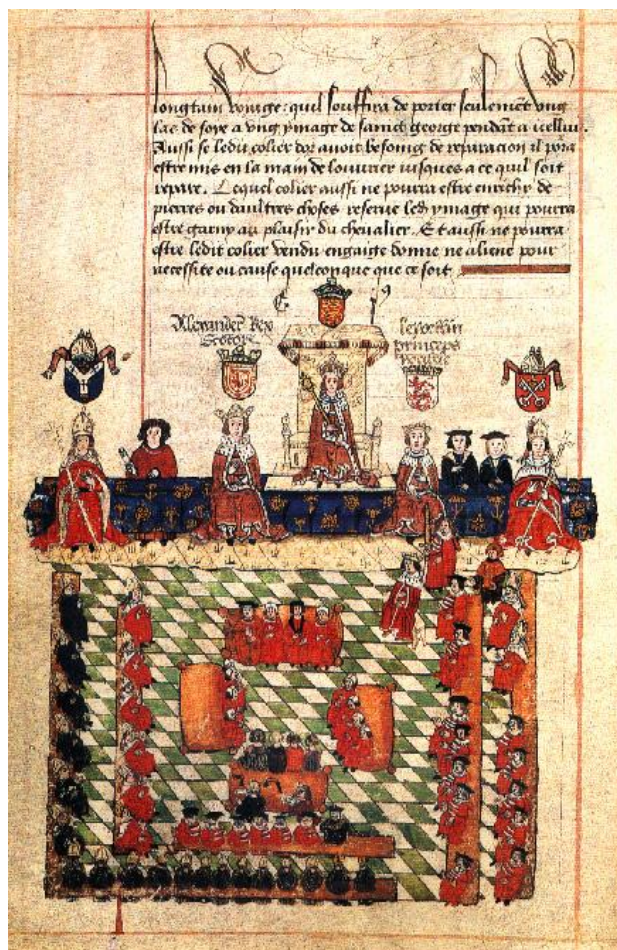 longtain voiaige: quil souffira de porter seulemẽt vng
lac de soye a vng ymage de sainct george pendãt a icellui.
Aussi se ledit colier dor auoit besoing de reparacion il pora
estre mis en la main de louurier iusques a ce quil soit
repare. Lequel colier aussi ne pourra estre enrichy de
pierres ou daultres choses reserue led ymage qui pourra
estre garny au plaisir du cheualier. Et aussi ne pourra
estre ledit colier vendu engaige donne ne aliene pour
necessite ou cause quelconque que ce soit
Alexander Rex
Scotor
princeps